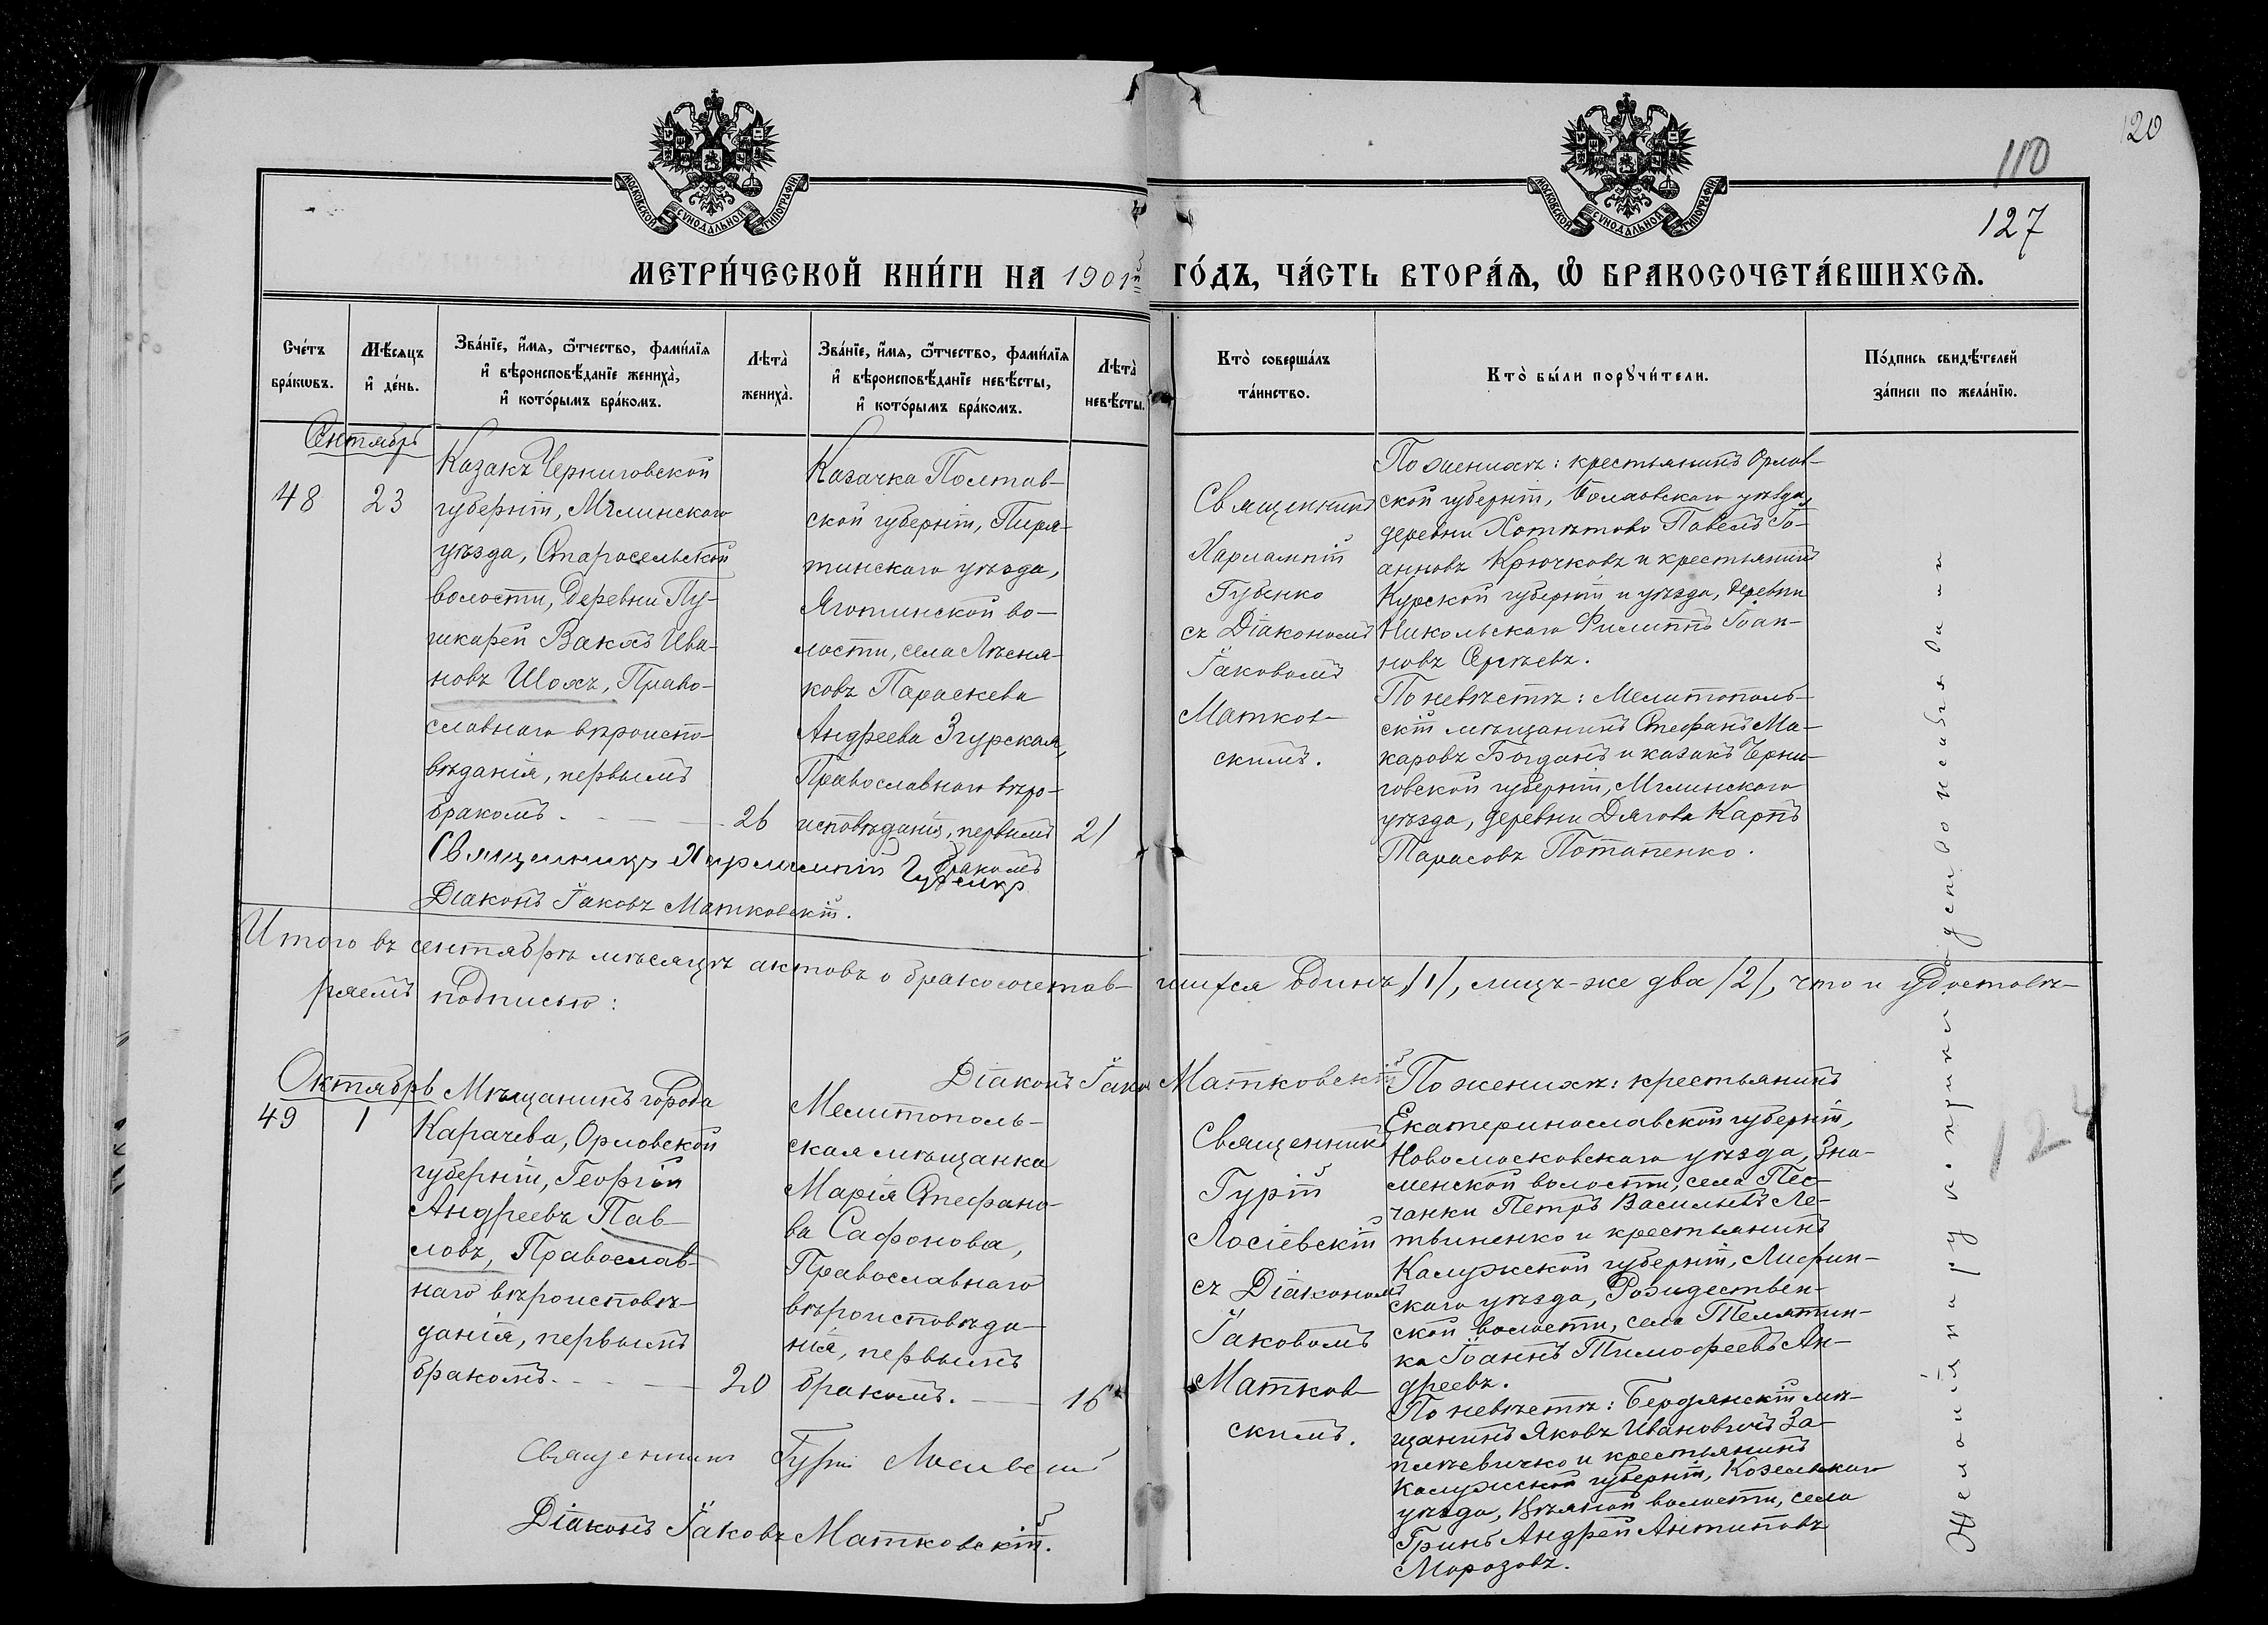 120
110
127
МОСКОВСКОЙ СѴНОДАЛЬНОЙ ТИПОГРАФІИ
МОСКОВСКОЙ СѴНОДАЛЬНОЙ ТИПОГРАФІИ
МЕТРИ́ЧЕСКОЙ КНИ́ГИ НА 1901й ГО́ДЪ, ЧА́СТЬ ВТОРА́Ѧ, Ѽ БРАКОСОЧЕТА́ВШИХСѦ.
Счéтъ
брáкѡвъ.
Мѣ́сяцъ
и҆ дéнь.
Звáнїе, и҆́мя, ѻ҆́тчество, фами́лїя
и҆ вѣроисповѣ́данїе женихà,
и҆ котóрымъ брáкомъ.
Лѣтà
женихà.
Звáнїе, и҆́мя, ѻ҆́тчество, фами́лїя
и҆ вѣроисповѣ́данїе невѣ́сты,
и҆ котóрымъ брáкомъ.
Лѣтà
невѣ́сты.
Ктò совершáлъ
тáинство.
Ктò бы́ли порꙋчи́тели.
Пóдпись свидѣ́телей
зáписи по желáнїю.
Сентябрь
48
23
Казакъ Черниговской
губерніи, Мглинскаго
уѣзда, Старосельской
волости, деревни Пу-
шкарей Вакхъ Ива-
новъ Шохъ, Право-
славнаго вѣроиспо-
вѣданія, первымъ
бракомъ.
26
Казачка Полтав-
ской губерніи, Пиря-
тинскаго уѣзда,
Яготинской во-
лости, села Лѣсня-
ковъ Параскева
Андреева Згурская,
Православнаго вѣро-
исповѣданія, первымъ
бракомъ
21
Священникъ
Харлампій
Губенко
съ Діакономъ
Іаковомъ
Матков-
скимъ.
По женихѣ: крестьянинъ Орлов-
ской губерніи, Болховского уѣзда,
деревни Хотѣтово Павелъ Іо-
анновъ Крючковъ и крестьянинъ
Курской губерніи и уѣзда, деревни
Никольскаго Филиппъ Іоан-
новъ Сергѣевъ.
По невѣстѣ: Мелитополь-
скій мѣщанинъ Стефанъ Ма-
каровъ Богданъ и казакъ Черни-
говской губерніи, Мглинскаго
уѣзда, деревни Дягова Карпъ
Тарасовъ Потапенко.
Священникъ Харлампій Губенко
Діаконъ Іаковъ Матковскій.
Итого въ сентябрѣ мѣсяцѣ актовъ о бракосочетав- шихся одинъ /1/, лицъ-же два /2/, что и удостовѣ-
ряемъ подписью:
Діаконъ Іаковъ Матковскій
Октябрь
49
1
Мѣщанинъ города
Карачева, Орловской
губерніи, Георгій
Андреевъ Пав-
ловъ, Православ-
наго вѣроисповѣ-
данія, первымъ
бракомъ.
20
Мелитополь-
ская мѣщанка
Марія Стефано-
ва Сафонова,
Православнаго
вѣроисповѣда-
нія, первымъ
бракомъ.
16
Священникъ
Гурій
Лосіевскій
съ Діакономъ
Іаковомъ
Матков-
скимъ.
По женихѣ: крестьянинъ
Екатеринославской губерніи,
Новомосковскаго уѣзда, Зна-
менской волости, села Пес-
чанки Петръ Васильевъ Ле-
твиненко и крестьянинъ
Калужской губерніи, Лифин-
скаго уѣзда, Рождествен-
ской волости, села Телятин-
ка Іоаннъ Тимофеевъ Ан-
дреевъ.
По невѣстѣ: Бердянскій мѣ-
щанинъ Яковъ Ивановичъ За-
пѣевичко и крестьянинъ
Калужской губерніи, Козельскаго
уѣзда, волости, села
Гринъ Андрей Антиповъ
Морозовъ.
Священникъ Гурій Лосіевскій
Діаконъ Іаковъ Матковскій.